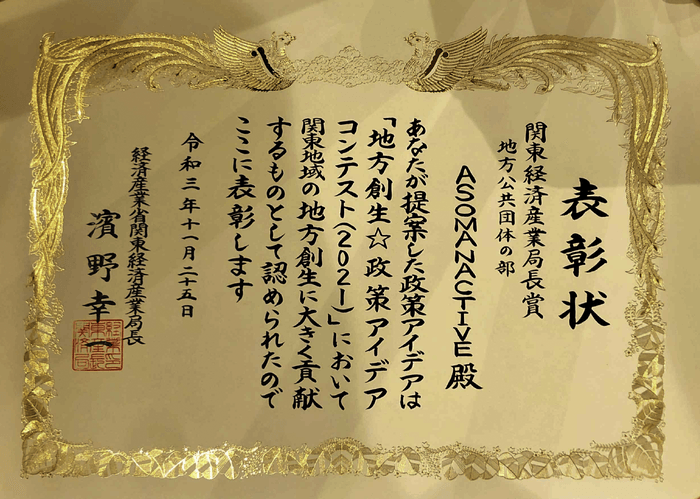 表彰状
関東経済産業局長賞
地方公共団体の部
ASOMANACTIVE 殿
あなたが提案した政策アイデアは
「地方創生☆政策アイデア
コンテスト(2021)」において
関東地域の地方創生に大きく貢献
するものとして認められたので
ここに表彰します
令和三年十一月二十五日
経済産業省関東経済産業局長
濱野幸一